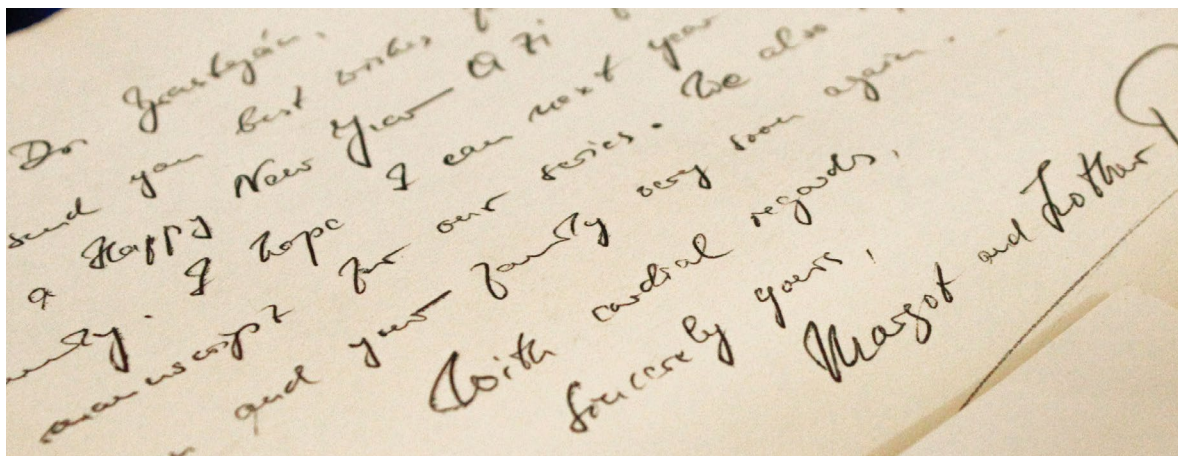 Dr.
send you best wishes
a Happy New Year
I hope I can next year
manuscript for our series. We also
and your family very soon again...
With cordial regards,
Sincerely yours,
Margot and Lothar